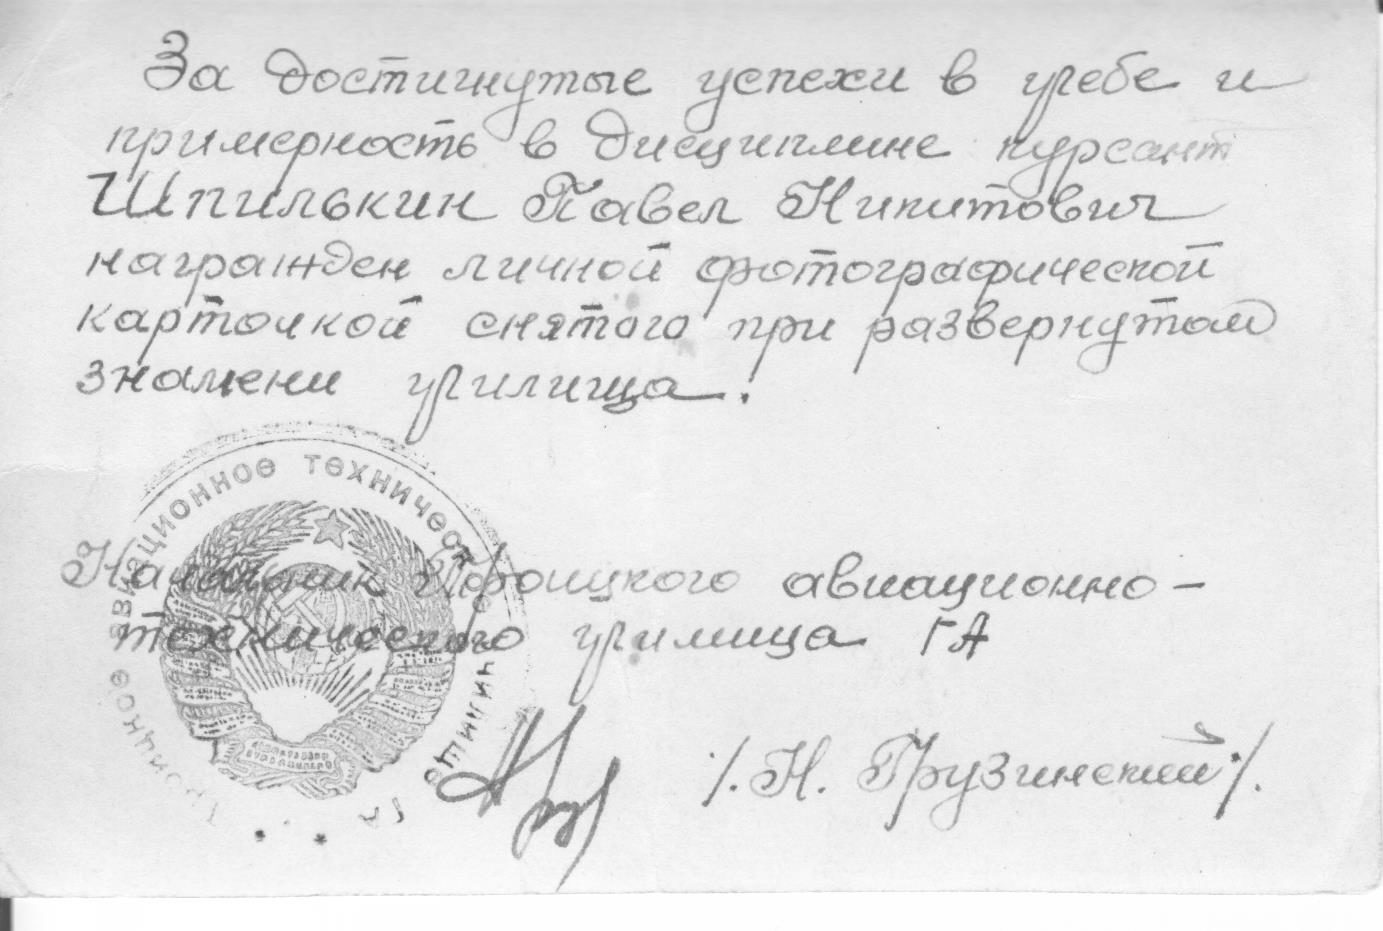 За достигнутые успехи в учебе и
примерность в дисциплине курсант
Шпилькин Павел Никитович
награжден личной фотографической
карточкой снятого при развернутом
знамени училища.
Начальник Троицкого авиационно-
технического училища ГА
/. Н. Грузинский /.
Троицкое авиационное техническое училище ГА